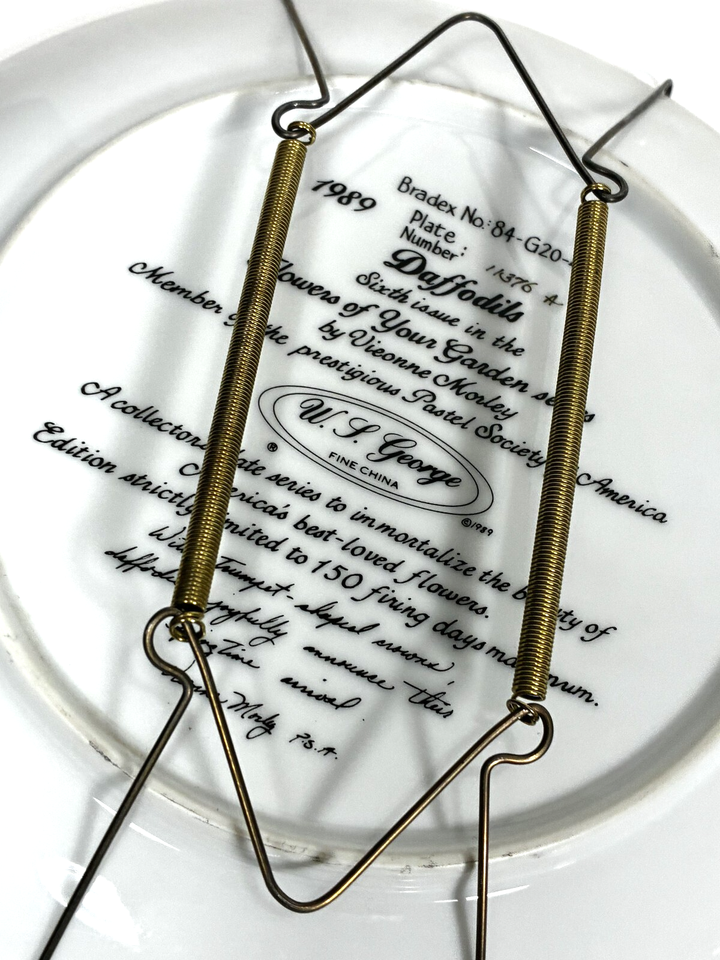 1989
Bradex No.: 84-G20-
Plate
Number : 11376 A
Daffodils
Sixth issue in the
Flowers of Your Garden series
by Vieonne Morley
Member of the prestigious Pastel Society of America
W. S. George
FINE CHINA
®
©1989
A collectors plate series to immortalize the beauty of
America's best-loved flowers.
Edition strictly limited to 150 firing days maximum.
With Trumpet-shaped crowns,
daffodils joyfully announce this
arrival
Morley P.S.A.